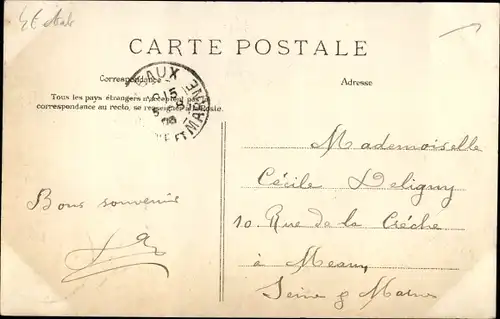 CARTE POSTALE
Correspondance
Adresse
Tous les pays étrangers n'acceptent pas
correspondance au recto, se renseigner à la Poste.
EAUX
6 15
5 -8
08
ET MARNE
Mademoiselle
Cécile Deligny
10 Rue de la Crèche
à Meaux
Seine & Marne
Bons souvenirs